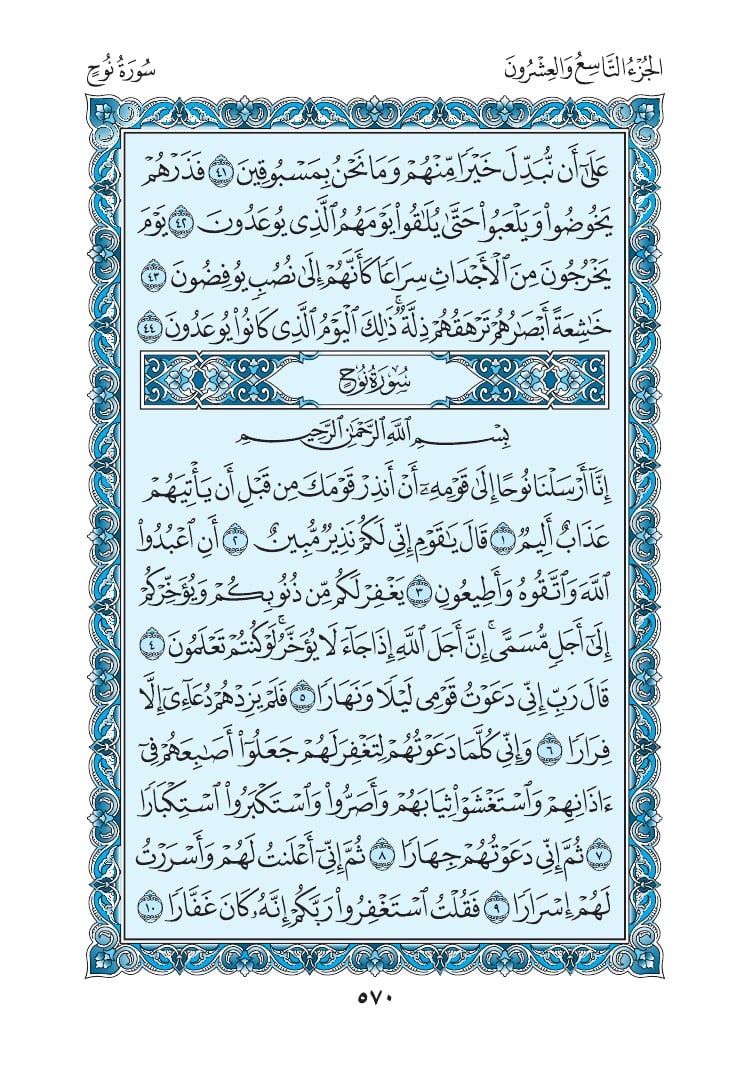 الجُزْءُ التَّاسِعُ وَالعِشْرُونَ
سُورَةُ نُوحٍ
عَلَىٰٓ أَن نُّبَدِّلَ خَيْرًا مِّنْهُمْ وَمَا نَحْنُ بِمَسْبُوقِينَ ٤١ فَذَرْهُمْ
يَخُوضُوا۟ وَيَلْعَبُوا۟ حَتَّىٰ يُلَـٰقُوا۟ يَوْمَهُمُ ٱلَّذِى يُوعَدُونَ ٤٢ يَوْمَ
يَخْرُجُونَ مِنَ ٱلْأَجْدَاثِ سِرَاعًا كَأَنَّهُمْ إِلَىٰ نُصُبٍ يُوفِضُونَ ٤٣
خَـٰشِعَةً أَبْصَـٰرُهُمْ تَرْهَقُهُمْ ذِلَّةٌ ۚ ذَٰلِكَ ٱلْيَوْمُ ٱلَّذِى كَانُوا۟ يُوعَدُونَ ٤٤
سُورَةُ نُوحٍ
بِسْمِ ٱللَّهِ ٱلرَّحْمَـٰنِ ٱلرَّحِيمِ
إِنَّآ أَرْسَلْنَا نُوحًا إِلَىٰ قَوْمِهِۦٓ أَنْ أَنذِرْ قَوْمَكَ مِن قَبْلِ أَن يَأْتِيَهُمْ
عَذَابٌ أَلِيمٌ ١ قَالَ يَـٰقَوْمِ إِنِّى لَكُمْ نَذِيرٌ مُّبِينٌ ٢ أَنِ ٱعْبُدُوا۟
ٱللَّهَ وَٱتَّقُوهُ وَأَطِيعُونِ ٣ يَغْفِرْ لَكُم مِّن ذُنُوبِكُمْ وَيُؤَخِّرْكُمْ
إِلَىٰٓ أَجَلٍ مُّسَمًّى ۚ إِنَّ أَجَلَ ٱللَّهِ إِذَا جَآءَ لَا يُؤَخَّرُ ۖ لَوْ كُنتُمْ تَعْلَمُونَ ٤
قَالَ رَبِّ إِنِّى دَعَوْتُ قَوْمِى لَيْلًا وَنَهَارًا ٥ فَلَمْ يَزِدْهُمْ دُعَآءِىٓ إِلَّا
فِرَارًا ٦ وَإِنِّى كُلَّمَا دَعَوْتُهُمْ لِتَغْفِرَ لَهُمْ جَعَلُوٓا۟ أَصَـٰبِعَهُمْ فِىٓ
ءَاذَانِهِمْ وَٱسْتَغْشَوْا۟ ثِيَابَهُمْ وَأَصَرُّوا۟ وَٱسْتَكْبَرُوا۟ ٱسْتِكْبَارًا
٧ ثُمَّ إِنِّى دَعَوْتُهُمْ جِهَارًا ٨ ثُمَّ إِنِّىٓ أَعْلَنتُ لَهُمْ وَأَسْرَرْتُ
لَهُمْ إِسْرَارًا ٩ فَقُلْتُ ٱسْتَغْفِرُوا۟ رَبَّكُمْ إِنَّهُۥ كَانَ غَفَّارًا ١٠
٥٧٠